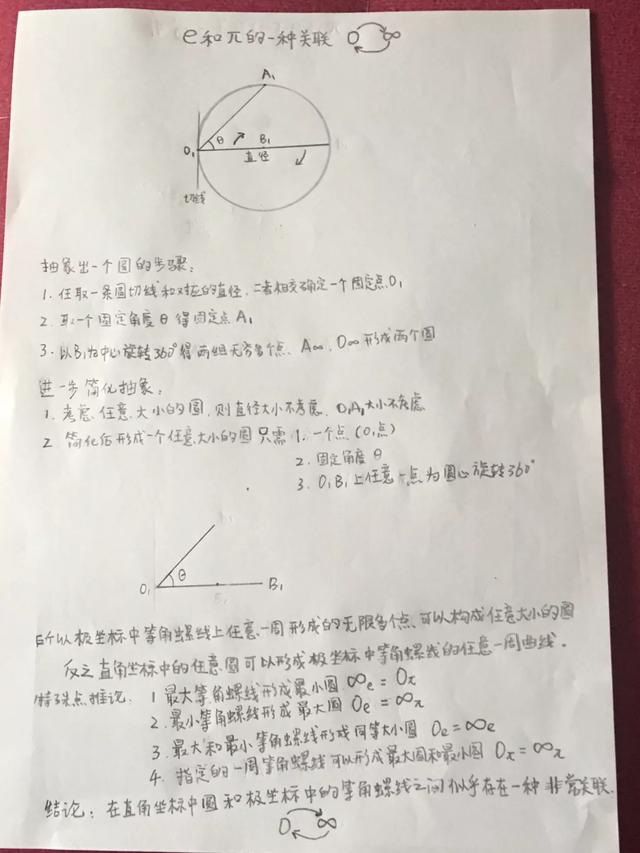 e和π的一种关联 0 ∞
A₁
O₁ θ B₁
直径
切线
抽象出一个圆的步骤:
1. 任取一条圆切线和对应的直径,二者相交确定一个固定点O₁
2. 取一个固定角度θ得固定点A₁
3. 以B₁为中心旋转360°得两组无穷多个点、A∞、O∞形成两个圆
进一步简化抽象:
1. 考虑任意大小的圆,则直径大小不考虑、O₁A₁大小不考虑
2 简化后形成一个任意大小的圆只需 1. 一个点(O₁点)
2. 固定角度θ
3. O₁B₁上任意一点为圆心旋转360°
O₁ θ B₁
以极坐标中等角螺线上任意一周形成的无限多个点,可以构成任意大小的圆
反之直角坐标中的任意圆可以形成极坐标中等角螺线的任意一周曲线.
特殊点推论. 1 最大等角螺线形成最小圆 ∞e=0π
2. 最小等角螺线形成最大圆 0e=∞π
3. 最大和最小等角螺线形成同等大小圆 0e=∞e
4. 指定的一周等角螺线可以形成最大圆和最小圆 0π=∞π
结论:在直角坐标中圆和极坐标中的等角螺线之间似乎存在一种非常关联.
0 ∞